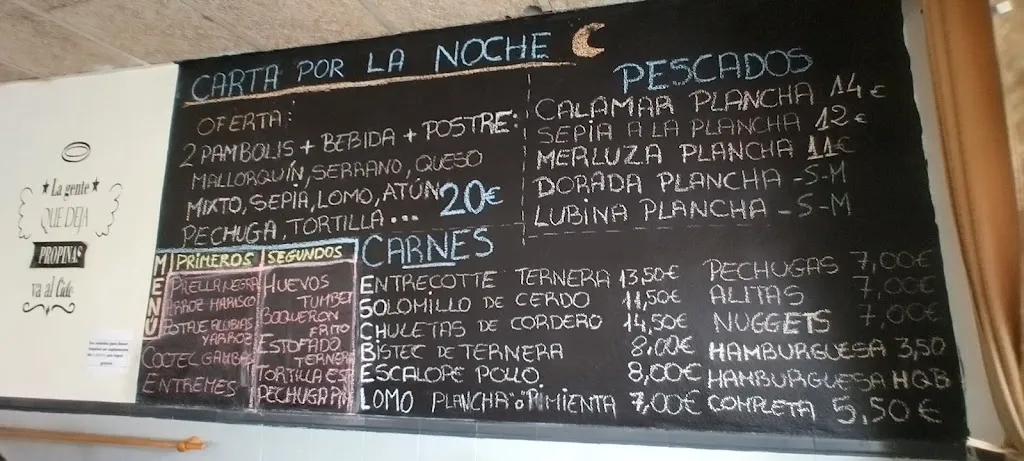 La gente
QUE DEJA
PROPINAS
va al Cielo
CARTA POR LA NOCHE
OFERTA:
2 PAMBOLIS + BEBIDA + POSTRE:
MALLORQUÍN, SERRANO, QUESO
MIXTO, SEPIA, LOMO, ATÚN
PECHUGA, TORTILLA ...
20€
PESCADOS
CALAMAR PLANCHA 14€
SEPIA A LA PLANCHA 12€
MERLUZA PLANCHA 11€
DORADA PLANCHA -S-M
LUBINA PLANCHA -S-M
MENÚ
PRIMEROS
PAELLA NEGRA
ARROZ MARISCO
POTAJE ALUBIAS
Y ARROZ
COCTEL GAMBAS
ENTREMES
SEGUNDOS
HUEVOS
TUMBET
BOQUERON
FRITO
ESTOFADO
TERNERA
TORTILLA ESP
PECHUGA
CARNES
ENTRECOTTE TERNERA 13,50€
SOLOMILLO DE CERDO 11,50€
CHULETAS DE CORDERO 14,50€
BISTEC DE TERNERA 8,00€
ESCALOPE POLLO 8,00€
LOMO PLANCHA o PIMIENTA 7,00€
PECHUGAS 7,00€
ALITAS 7,00€
NUGGETS 7,00€
HAMBURGUESA 3,50
HAMBURGUESA HQB
COMPLETA 5,50€